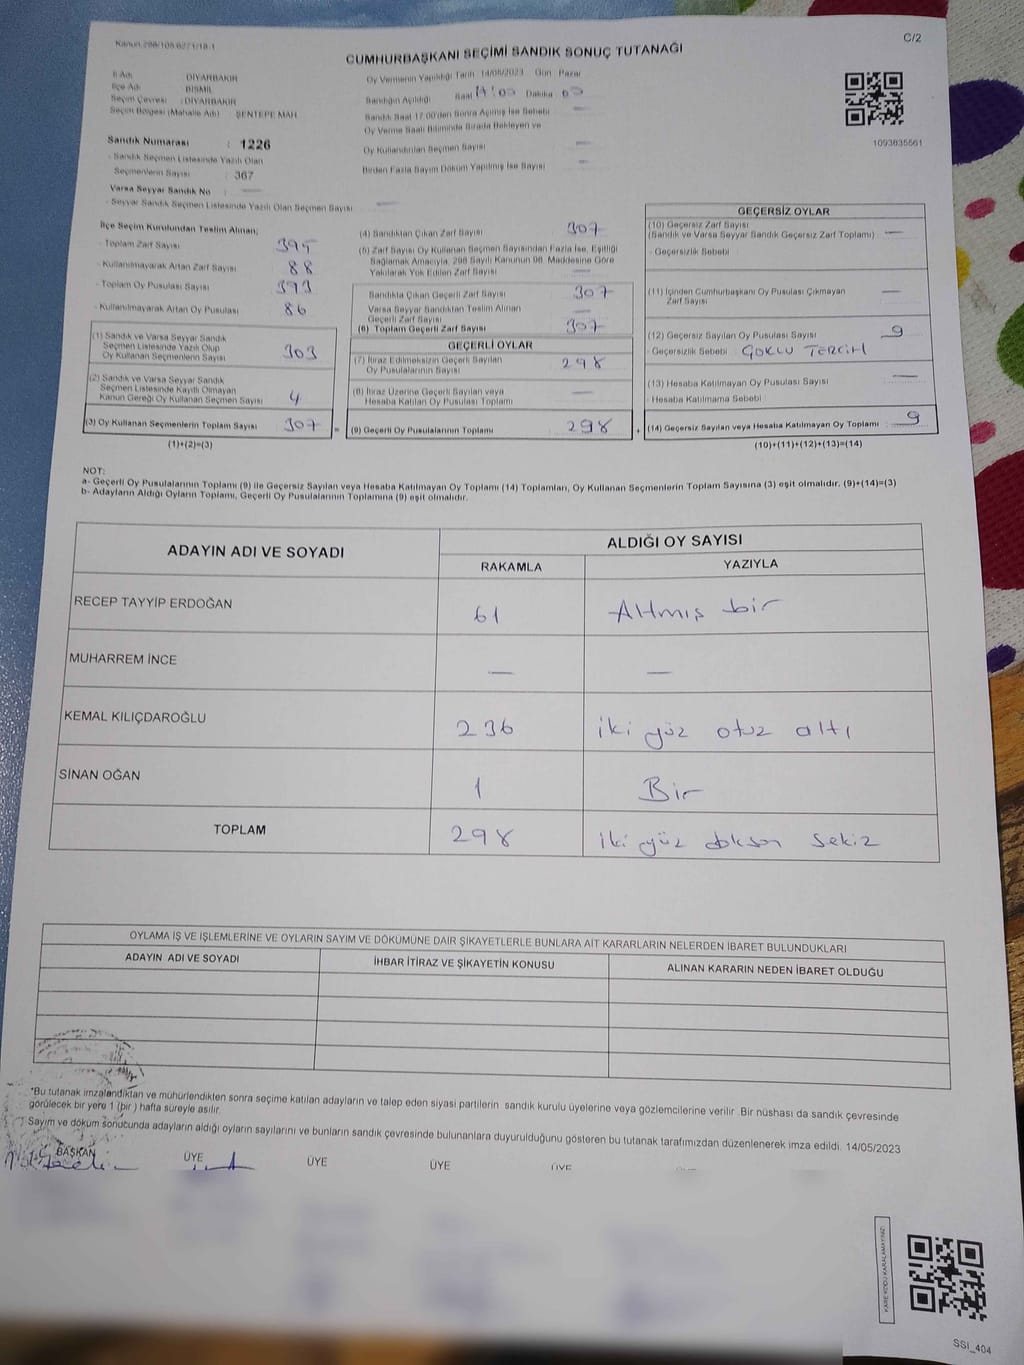 Kanun.298/105.6271/18.1
C/2
CUMHURBAŞKANI SEÇİMİ SANDIK SONUÇ TUTANAĞI
İl Adı DİYARBAKIR
İlçe Adı BİSMİL
Seçim Çevresi : DİYARBAKIR
Seçim Bölgesi (Mahalle Adı) ŞENTEPE MAH
Sandık Numarası : 1226
- Sandık Seçmen Listesinde Yazılı Olan
Seçmenlerin Sayısı : 367
Varsa Seyyar Sandık No : —
- Seyyar Sandık Seçmen Listesinde Yazılı Olan Seçmen Sayısı —
Oy Vermenin Yapıldığı Tarih 14/05/2023 Gün Pazar
Sandığın Açıldığı Saat Dakika
Sandık Saat 17.00'den Sonra Açılmış İse Sebebi —
Oy Verme Saati Bitiminde Sırada Bekleyen ve
Oy Kullandırılan Seçmen Sayısı —
Birden Fazla Sayım Döküm Yapılmış İse Sayısı —
1093835561
İlçe Seçim Kurulundan Teslim Alınan;
- Toplam Zarf Sayısı 395
- Kullanılmayarak Artan Zarf Sayısı 88
- Toplam Oy Pusulası Sayısı 393
- Kullanılmayarak Artan Oy Pusulası 86
(1) Sandık ve Varsa Seyyar Sandık
Seçmen Listesinde Yazılı Olup
Oy Kullanan Seçmenlerin Sayısı 303
(2) Sandık ve Varsa Seyyar Sandık
Seçmen Listesinde Kayıtlı Olmayan
Kanun Gereği Oy Kullanan Seçmen Sayısı 4
(3) Oy Kullanan Seçmenlerin Toplam Sayısı 307
(1)+(2)=(3)
(4) Sandıktan Çıkan Zarf Sayısı 307
(5) Zarf Sayısı Oy Kullanan Seçmen Sayısından Fazla İse, Eşitliği
Sağlamak Amacıyla, 298 Sayılı Kanunun 98. Maddesine Göre
Yakılarak Yok Edilen Zarf Sayısı
Sandıkta Çıkan Geçerli Zarf Sayısı 307
Varsa Seyyar Sandıktan Teslim Alınan
Geçerli Zarf Sayısı —
(6) Toplam Geçerli Zarf Sayısı 307
GEÇERLİ OYLAR
(7) İtiraz Edilmeksizin Geçerli Sayılan
Oy Pusulalarının Sayısı 298
(8) İtiraz Üzerine Geçerli Sayılan veya
Hesaba Katılan Oy Pusulası Toplamı —
= (9) Geçerli Oy Pusulalarının Toplamı 298 +
GEÇERSİZ OYLAR
(10) Geçersiz Zarf Sayısı
(Sandık ve Varsa Seyyar Sandık Geçersiz Zarf Toplamı) —
- Geçersizlik Sebebi
(11) İçinden Cumhurbaşkanı Oy Pusulası Çıkmayan
Zarf Sayısı —
(12) Geçersiz Sayılan Oy Pusulası Sayısı 9
- Geçersizlik Sebebi ÇOKLU TERCİH
(13) Hesaba Katılmayan Oy Pusulası Sayısı —
- Hesaba Katılmama Sebebi
(14) Geçersiz Sayılan veya Hesaba Katılmayan Oy Toplamı : 9
(10)+(11)+(12)+(13)=(14)
NOT:
a- Geçerli Oy Pusulalarının Toplamı (9) ile Geçersiz Sayılan veya Hesaba Katılmayan Oy Toplamı (14) Toplamları, Oy Kullanan Seçmenlerin Toplam Sayısına (3) eşit olmalıdır. (9)+(14)=(3)
b- Adayların Aldığı Oyların Toplamı, Geçerli Oy Pusulalarının Toplamına (9) eşit olmalıdır.
ADAYIN ADI VE SOYADI
ALDIĞI OY SAYISI
RAKAMLA YAZIYLA
RECEP TAYYİP ERDOĞAN 61 Altmış bir
MUHARREM İNCE — —
KEMAL KILIÇDAROĞLU 236 iki yüz otuz altı
SİNAN OĞAN 1 Bir
TOPLAM 298 iki yüz doksan sekiz
OYLAMA İŞ VE İŞLEMLERİNE VE OYLARIN SAYIM VE DÖKÜMÜNE DAİR ŞİKAYETLERLE BUNLARA AİT KARARLARIN NELERDEN İBARET BULUNDUKLARI
ADAYIN ADI VE SOYADI İHBAR İTİRAZ VE ŞİKAYETİN KONUSU ALINAN KARARIN NEDEN İBARET OLDUĞU
*Bu tutanak imzalandıktan ve mühürlendikten sonra seçime katılan adayların ve talep eden siyasi partilerin sandık kurulu üyelerine veya gözlemcilerine verilir. Bir nüshası da sandık çevresinde
görülecek bir yere 1 (bir) hafta süreyle asılır.
Sayım ve döküm sonucunda adayların aldığı oyların sayılarını ve bunların sandık çevresinde bulunanlara duyurulduğunu gösteren bu tutanak tarafımızdan düzenlenerek imza edildi. 14/05/2023
BAŞKAN ÜYE ÜYE ÜYE ÜYE
KARE KODU KARALAMAYINIZ!
SSI_404